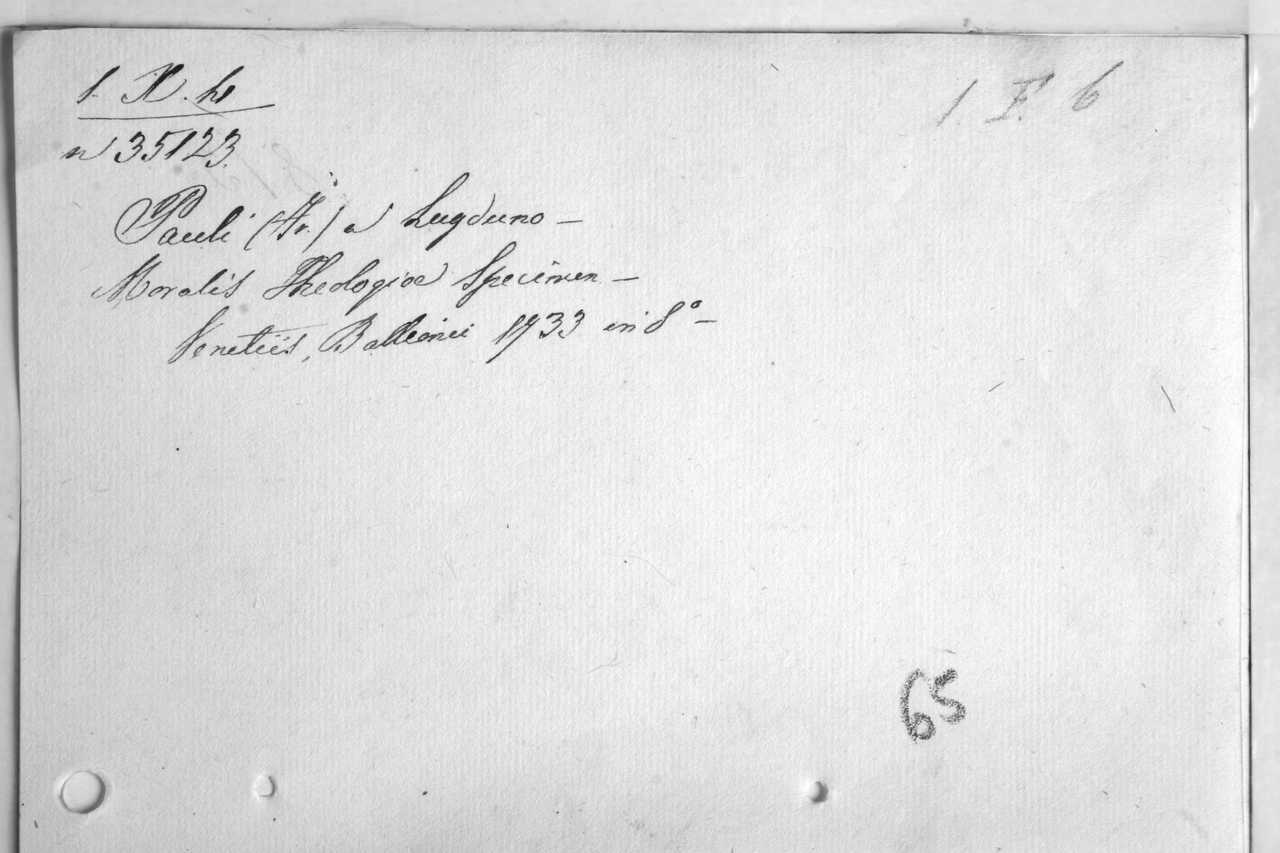 1. X. h
1. F. 6
n 35123.
Pauli (Fr.) a Lugduno –
Moralis Theologiae Specimen –
Venetiis, Balleonii 1733 in 8° –
65